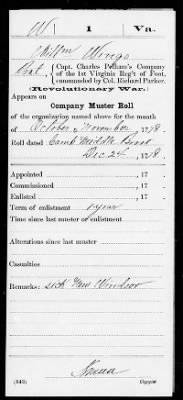 W | 1 | Va.
Wingo
Capt. Charles Pelham's Company
of the 1st Virginia Reg't of Foot,
commanded by Col. Richard Parker.
(Revolutionary War.)
Appears on
Company Muster Roll
of the organization named above for the month
of October & November, 1778.
Roll dated Camp Middle Brook
Dec 24, 1778.
Appointed , 17 .
Commissioned , 17 .
Enlisted , 17 .
Term of enlistment 1 year
Time since last muster or enlistment
Alterations since last muster
Casualties
Remarks: sick New Windsor
(543) Copyist.